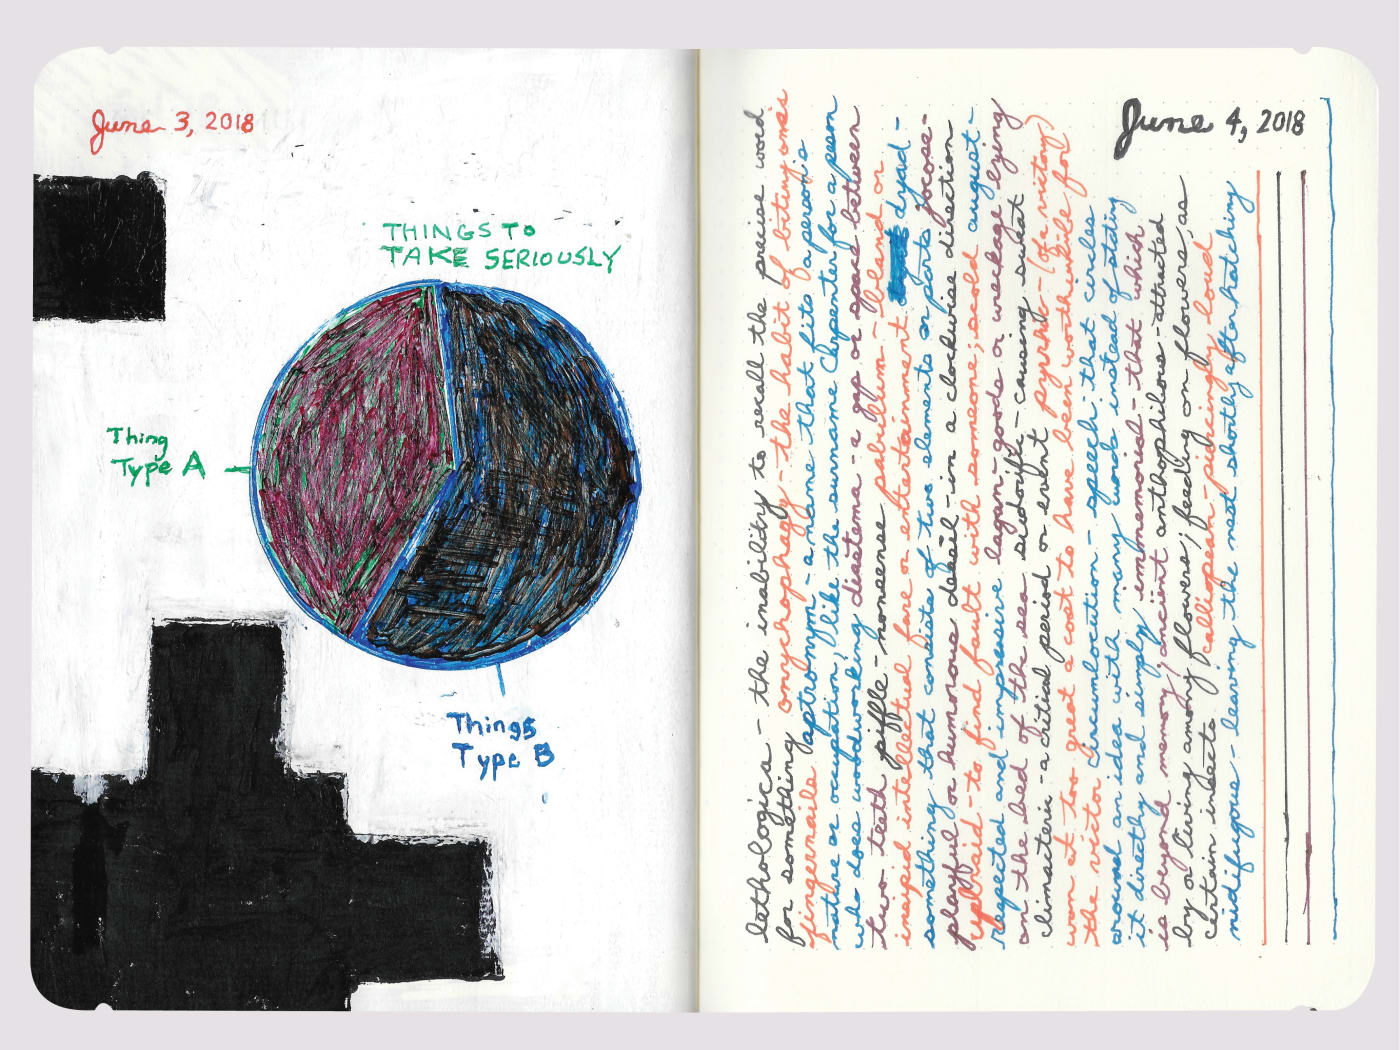 June 3, 2018
THINGS TO
TAKE SERIOUSLY
Thing
Type A
Things
Type B
June 4, 2018
lethologica - the inability to recall the precise word
for something onychophagy - the habit of biting one's
fingernails aptronym - a name that fits a person's
nature or occupation, like the surname Carpenter for a person
who does woodworking diastema - a gap or space between
two teeth piffle - nonsense pabulum - bland or
insipid intellectual fare or entertainment dyad -
something that consists of two elements or parts jocose -
playful or humorous deasil - in a clockwise direction
upbraid - to find fault with someone; scold august -
respected and impressive lagan - goods or wreckage lying
on the bed of the sea sudorific - causing sweat
climacteric - a critical period or event pyrrhic - (of a victory)
won at too great a cost to have been worthwhile for
the victor circumlocution - speech that circles
around an idea with many words instead of stating
it directly and simply immemorial - that which
is beyond memory; ancient anthophilous - attracted
by or living among flowers; feeding on flowers, as
certain insects calliopean - piercingly loud
nidifugous - leaving the nest shortly after hatching